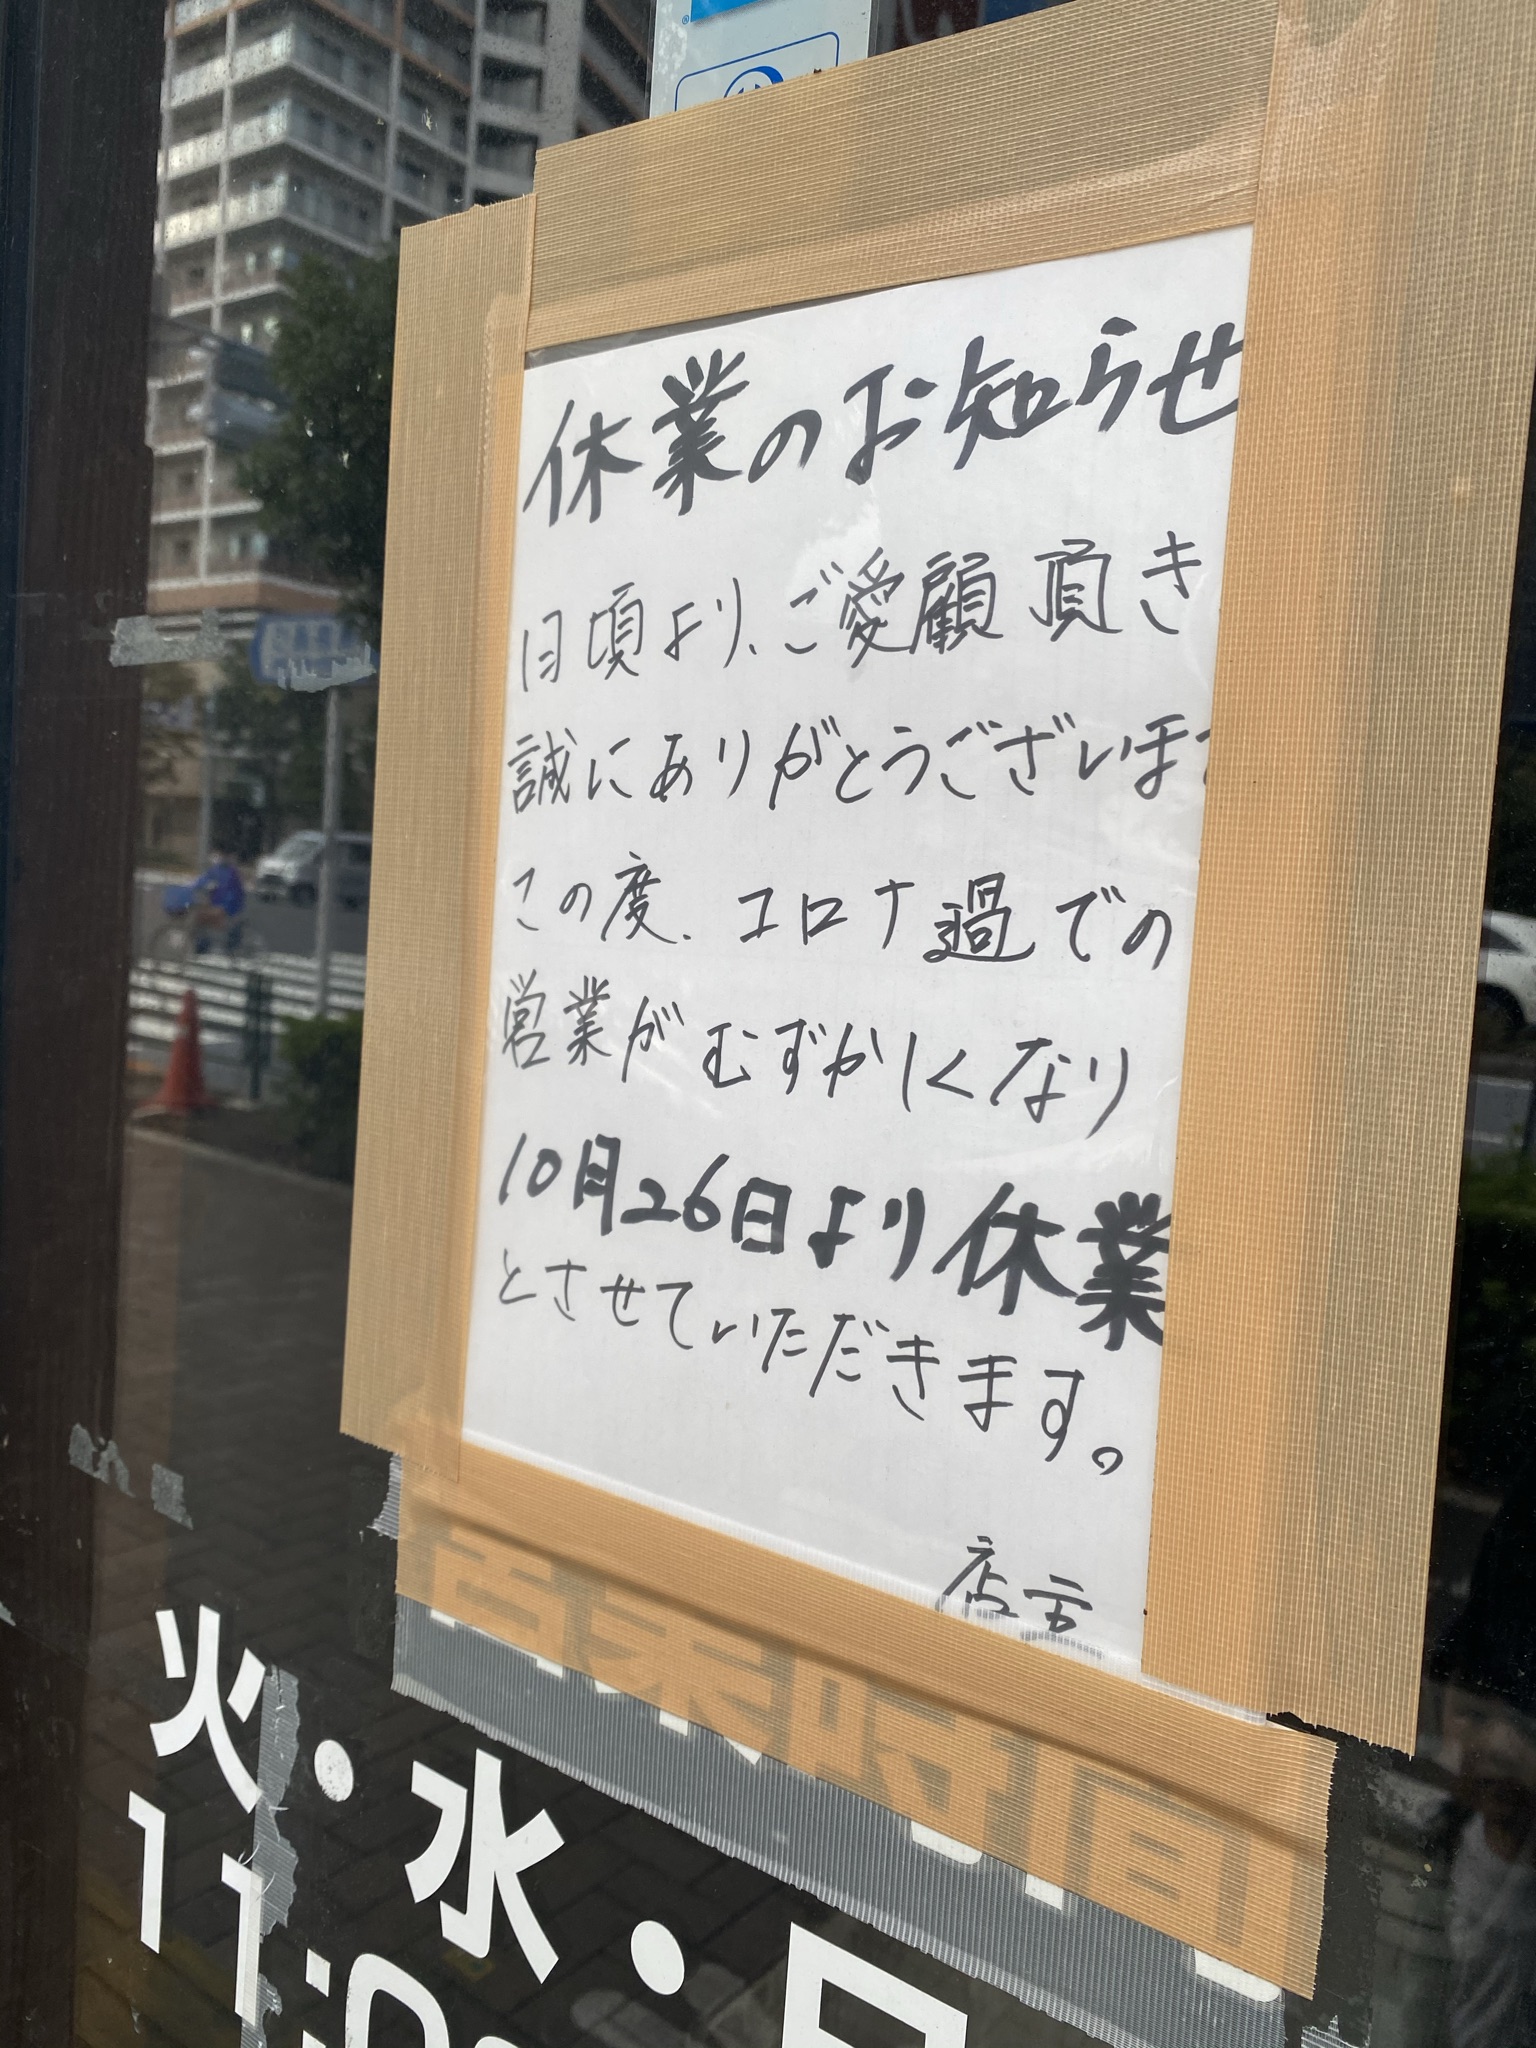 休業のお知らせ
日頃より、ご愛顧頂き
誠にありがとうございます
この度、コロナ過での
営業がむずかしくなり
10月26日より休業
とさせていただきます。
店主
営業時間
火・水・
11:0